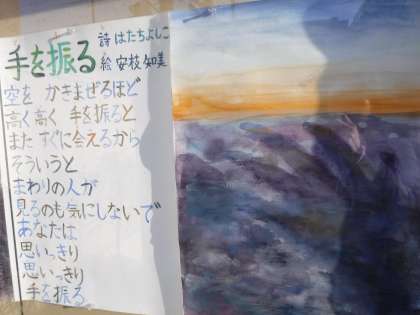 手を振る
詩 はたちよしこ
絵 安枝知美
空を かきまぜるほど
高く高く 手を振ると
また すぐに会えるから
そういうと
まわりの人が
見るのも気にしないで
あなたは
思いっきり
思いっきり
手を振る